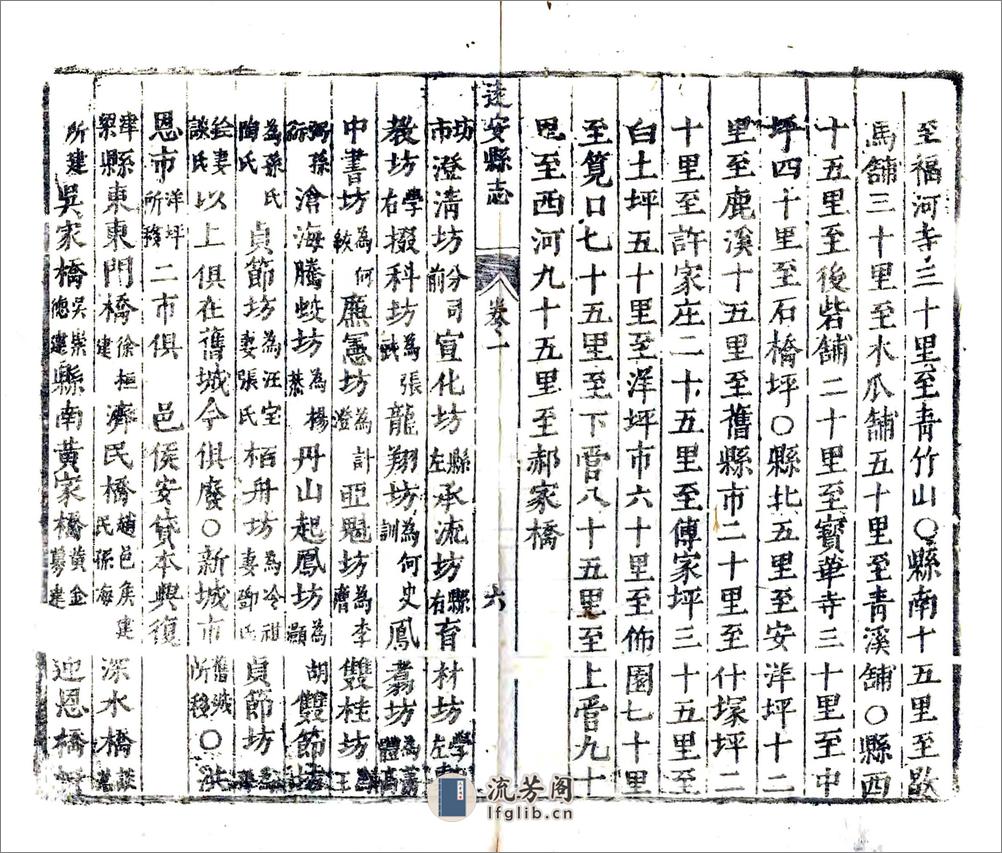 至福河寺三十里至靑竹山〇縣南十五里至歇
馬舖三十里至木爪舖五十里至靑溪舖〇縣西
十五里至後砦舖二十里至寳華寺三十里至中
坪四十里至石橋坪〇縣北五里至安洋坪十二
里至鹿溪十五里至舊縣市二十里至什塚坪二
十里至許家庄二十五里至傅家坪三十五里至
白土坪五十里至洋坪市六十里至佈園七十里
至筧口七十五里至下啻八十五里至上啻九十
里至西河九十五里至郝家橋
遠安縣志 卷二 六
坊市澄淸坊分司前宣化坊縣左承流坊縣右育材坊學左
敎坊學右掇科坊爲張龍翔坊爲何訓史鳳翥坊
中書坊爲何廉憲坊爲計澄亞魁坊爲李雙桂坊
滄海騰蛟坊爲楊丹山起鳳坊爲胡顯雙節坊
爲孫氏貞節坊爲汪宝妻張氏栢舟坊爲冷祖妻鄧氏貞節坊
妻談氏以上俱在舊城今俱廢〇新城市舊城所移〇洪
恩市洋坪所移二市俱 邑侯安貸本興復
津梁縣東東門橋徐桓建濟民橋趙邑侯建民孫海深水橋談
所建吳家橋吳崇德建縣南黃家橋黃金募建迎恩橋
流芳阁
lfglib.cn